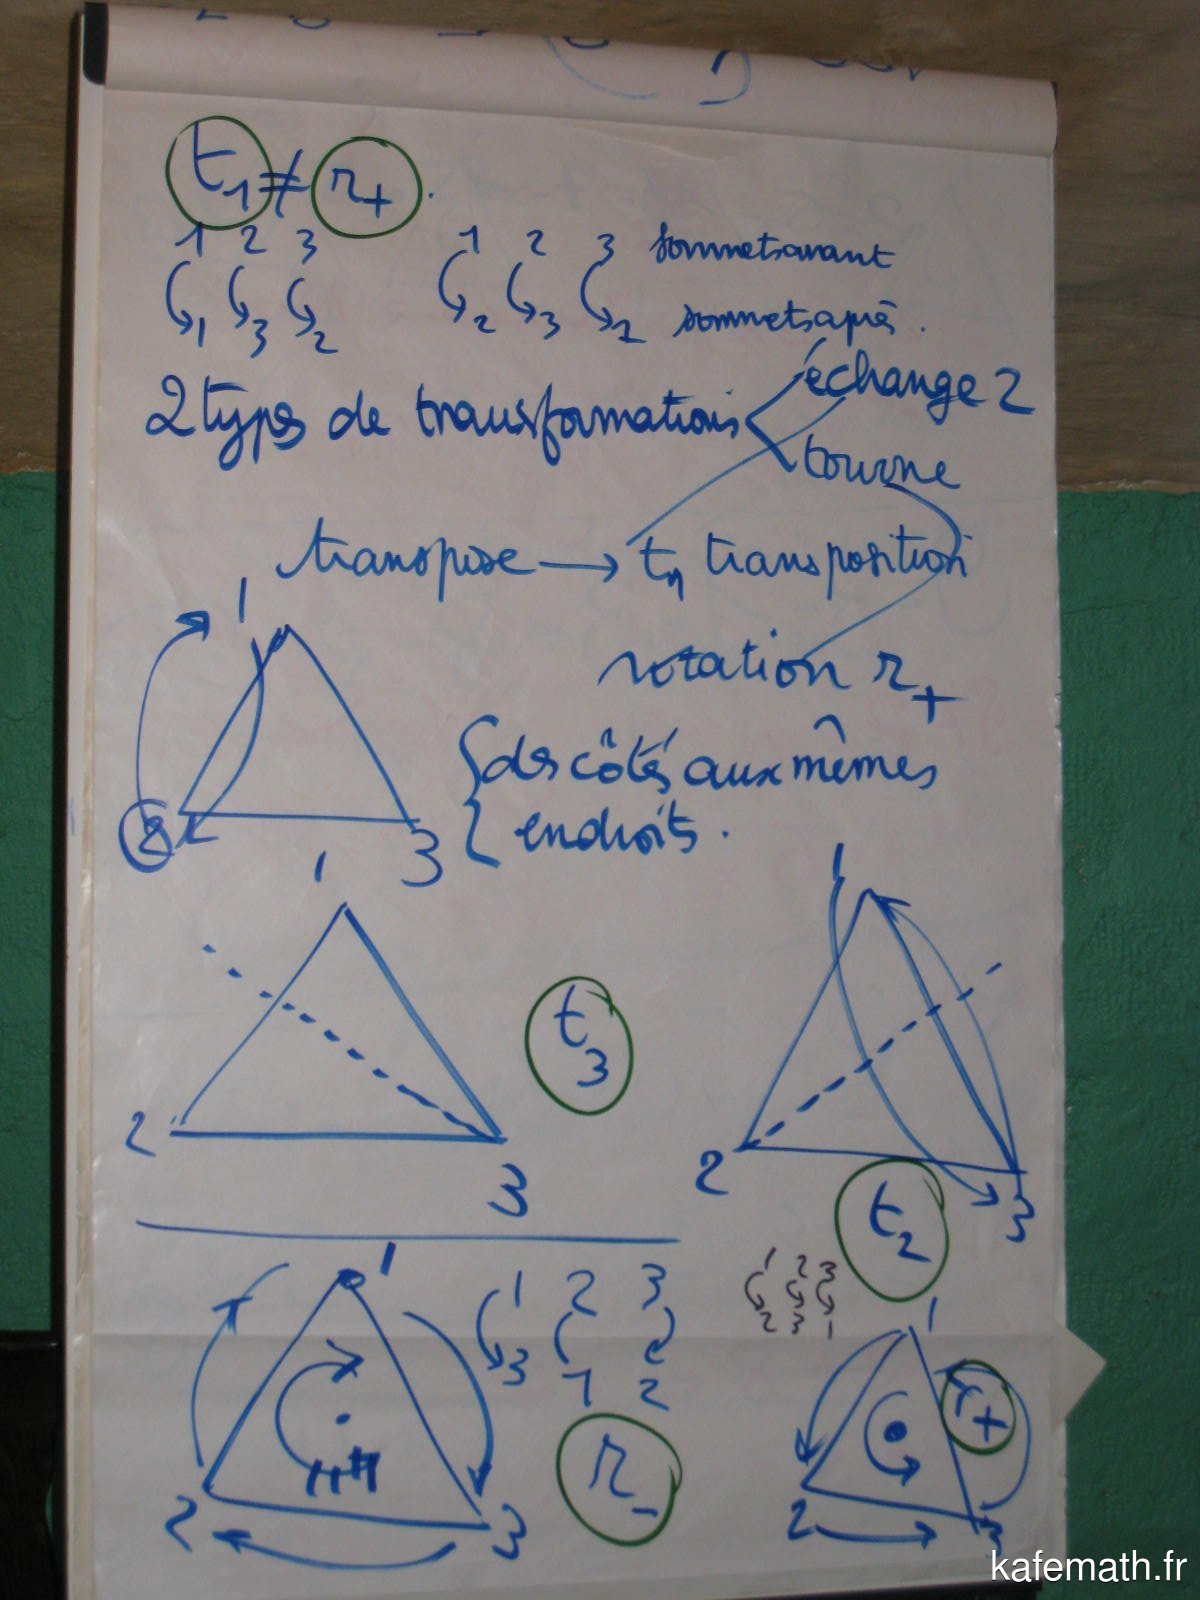 t₁ ≠ r₊.
1 2 3 1 2 3 sommets avant
1 3 2 2 3 1 sommets après.
2 types de transformations échange 2
tourne
transpose → tn transposition
rotation r₊
1
des côtés aux mêmes
endroits.
2 3
1 1
t₃
2 3
2 3
t₂
1 2 3
2 3 1
1 1 2 3 1
3 1 2
r₊
r₋
2 3 2 3
kafemath.fr